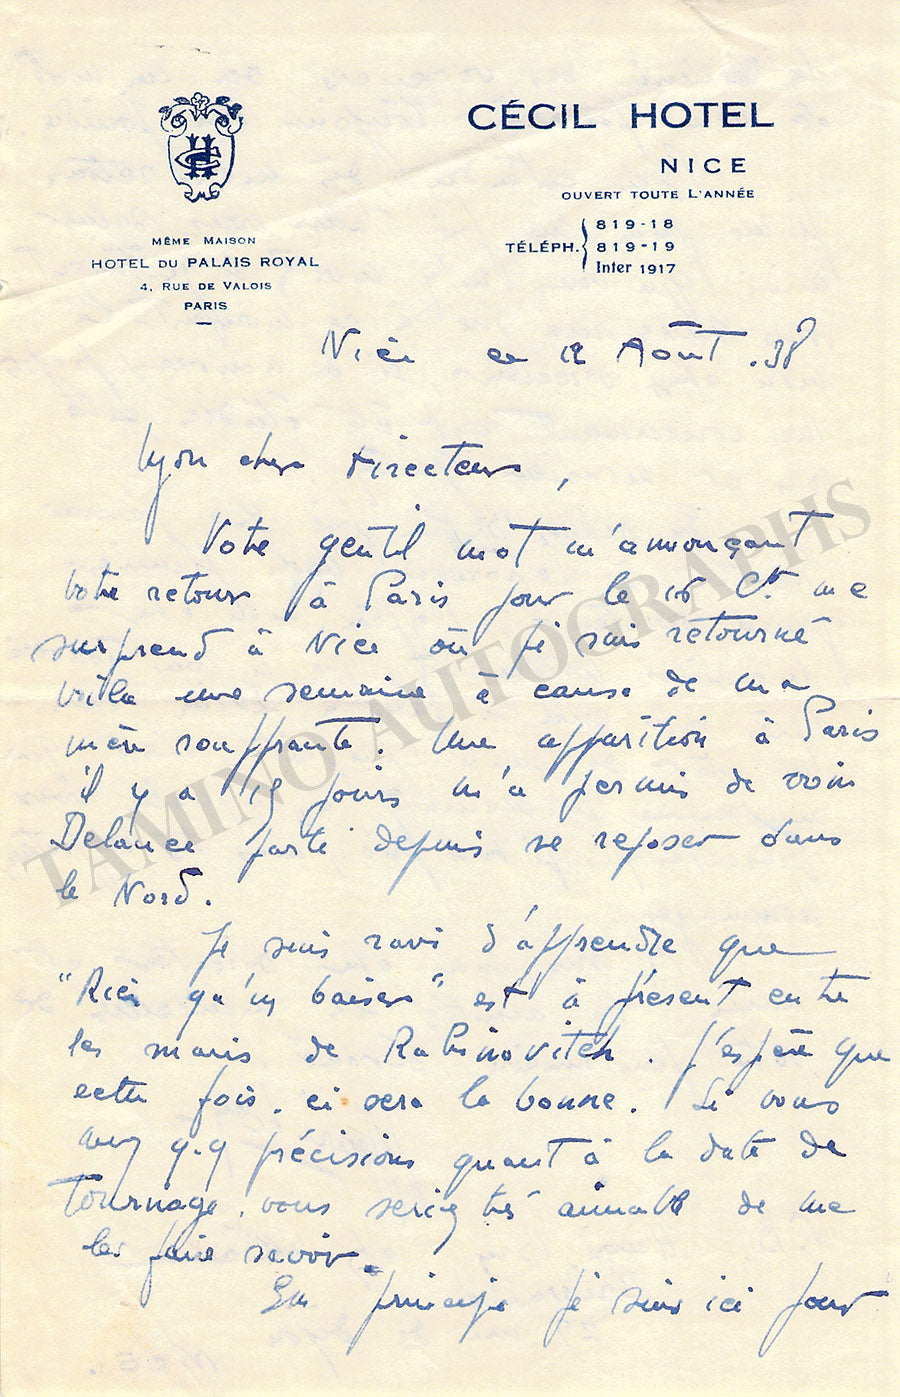 CÉCIL HOTEL
NICE
OUVERT TOUTE L'ANNÉE
TÉLÉPH. 819-18
819-19
Inter 1917
CH
MÊME MAISON
HOTEL DU PALAIS ROYAL
4, RUE DE VALOIS
PARIS
Nice ce 12 Août .38
Mon cher Directeur,
Votre gentil mot m'annonçant
votre retour à Paris pour le 16 Ct me
surprend à Nice où je suis retourné
voila une semaine à cause de ma
mère souffrante. Une apparition à Paris
il y a 15 jours m'a permis de voir
Delance parti depuis se reposer dans
le Nord.
Je suis ravi d'apprendre que
"Rien qu'un baiser" est à présent entre
les mains de Rabinovitch. J'espère que
cette fois.ci sera la bonne. Si vous
avez q.q précisions quant à la date de
Tournage. vous seriez très aimable de me
les faire savoir.
En principe je suis ici pour
TAMINO AUTOGRAPHS